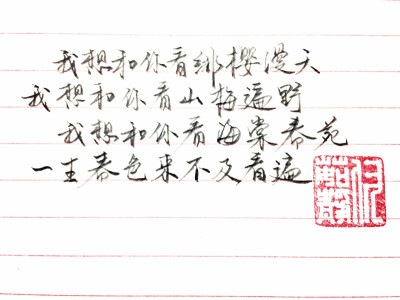 我想和你看绯樱漫天
我想和你看山梅遍野
我想和你看海棠春苑
一生春色来不及看遍